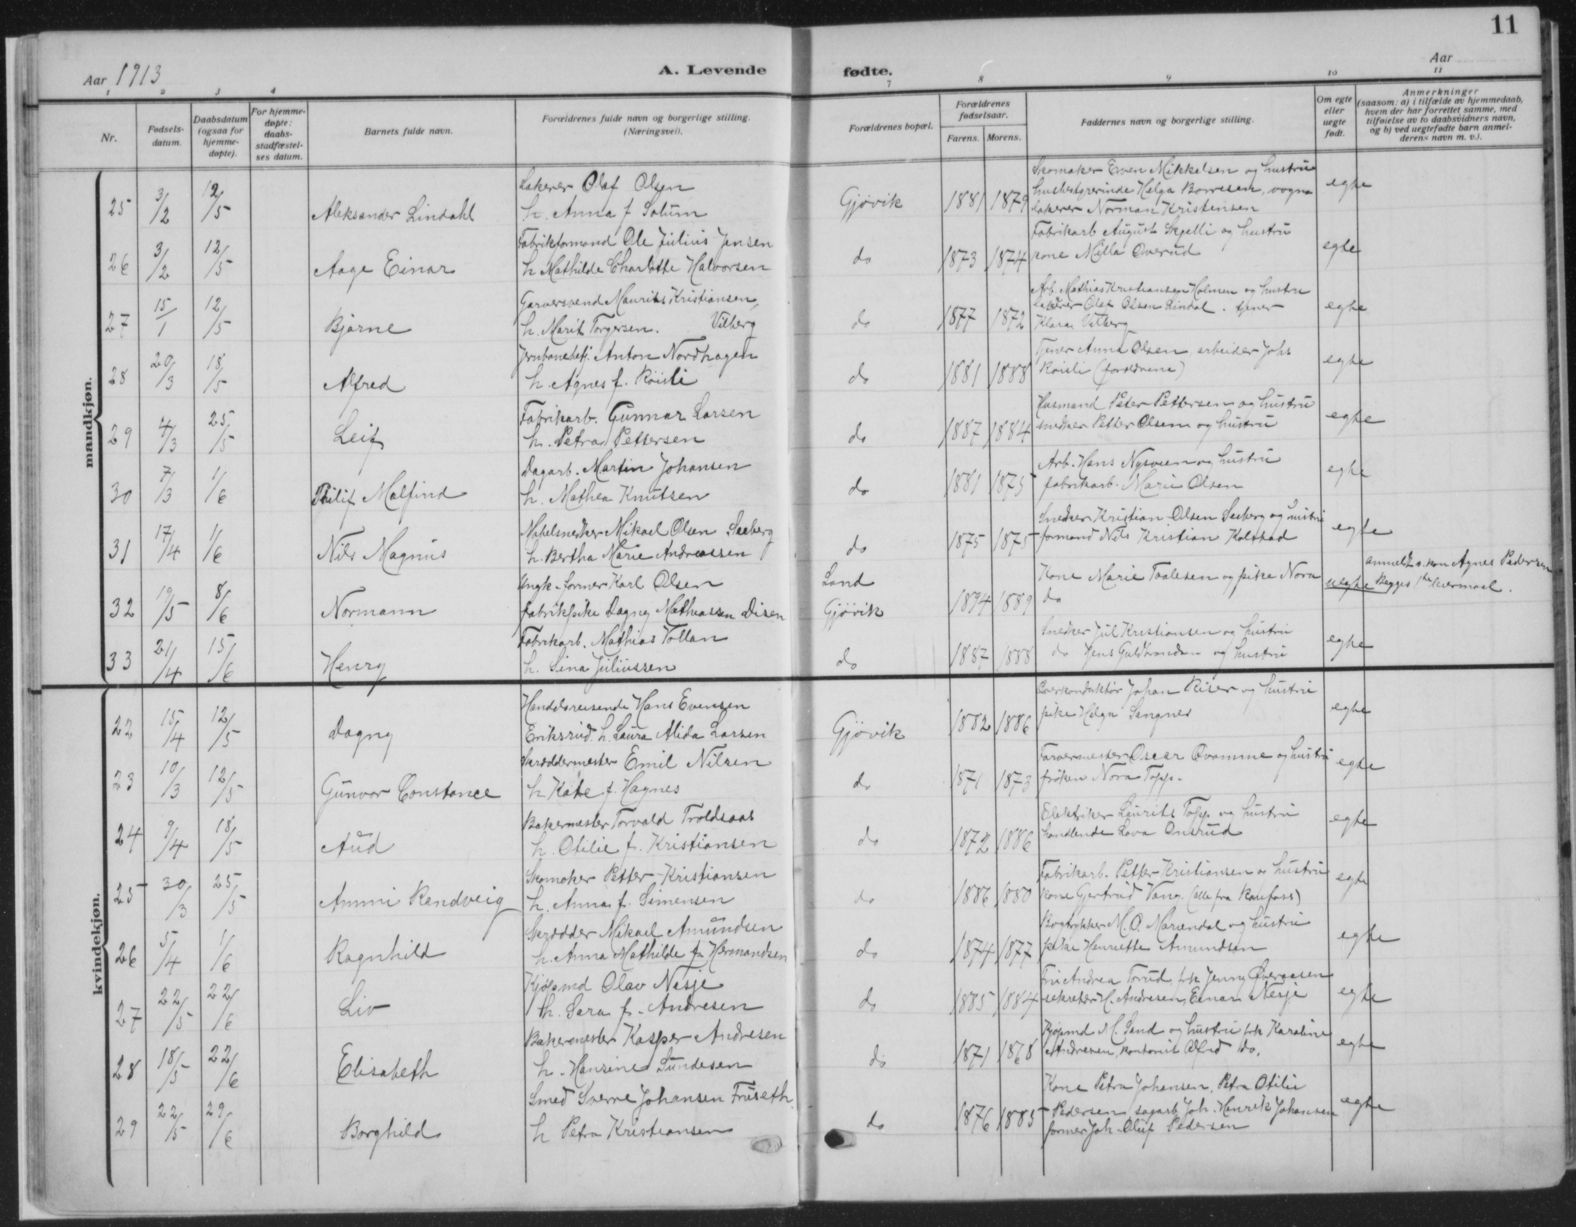 11
Aar 1913
A. Levende fødte.
Aar
1 2 3 4 7 8 9 10 11
Nr.
Fødsels-datum.
Daabsdatum (ogsaa for hjemme-døpte).
For hjemme-døpte: daabs-stadfæstel-ses datum.
Barnets fulde navn.
Forældrenes fulde navn og borgerlige stilling. (Næringsvei).
Forældrenes bopæl.
Forældrenes fødselsaar.
Farens. Morens.
Faddernes navn og borgerlige stilling.
Om egte eller uegte født.
Anmerkninger
(saasom: a) i tilfælde av hjemmedaab,
hvem der har forrettet samme, med
tilføielse av to daabsvidners navn,
og b) ved uegtefødte barn anmel-
derens navn m. v.).
mandkjøn.
25 3/2 12/5 Aleksander Lindahl
Lakerer Olaf Olsen
h. Anna f. Solum
Gjøvik 1881 1879
Skomaker Even Mikkelsen og hustru
husbestyrerinde Helga Borresen, vogn
lakerer Norman Kristensen
egte
26 3/2 12/5 Aage Einar
Fabrikformand Ole Julius Jensen
h Mathilde Charlotte Halvorsen
do 1873 1874
Fabrikarb August og hustru
kone Milla Overud
egte
27 15/1 12/5 Bjarne
Garversvend Maurits Kristiansen
h. Marit Torgersen. Vitberg
do 1877 1872
Arb. Mathias Kristiansen Holmen og hustru
lakerer Olaf Olsen Lindal. tjener
Klara Vitberg
egte
28 20/3 18/5 Alfred
Jernbanebetj. Anton Nordhagen
h. Agnes f. Røisli
do 1881 1888
Tjener Anna Olsen, arbeider Johs
Røisli (forældrene)
egte
29 4/3 25/5 Leif
Fabrikarb. Gunnar Larsen
h. Petra Pettersen
do 1887 1884
Husmand Peter Pettersen og hustru
snedker Petter Olsen og hustru
egte
30 7/3 1/6 Malfind
Dagarb. Martin Johansen
h. Mathea Knutsen
do 1881 1875
Arb. Hans Nysveen og hustru
fabrikarb. Marie Olsen
egte
31 17/4 1/6 Nils Magnus
Møbelsnedker Mikael Olsen Seeberg
h. Bertha Marie Andreassen
do 1875 1875
Snedker Kristian Olsen Seeberg og hustru
formand Nils Kristian Kolstad
egte
32 19/5 8/6 Normann
Ungk. former Karl Olsen
fabrikpike Dagny Mathiassen Disen
Land
Gjøvik 1894 1889
Kone Marie Toalesen og pike Nora
do
uegte
anmeldt a. kone Agnes Pedersen
Begges 1ste leiermaal.
33 21/4 15/6 Henry
Fabrikarb. Mathias Tollan
h. Lina Juliussen
do 1887 1888
Snedker Jul Kristiansen og hustru
do Jens Guldbrandsen og hustru
egte
kvindekjøn.
22 15/4 12/5 Dagny
Handelsreisende Hans Evensen
Eriksrud. h. Laura Alida Larsen
Gjøvik 1882 1886
Overkonduktør Johan Riser og hustru
pike Helga Sangnes
egte
23 10/3 12/5 Gunvor Constance
Skræddermester Emil Nilsen
h Käte f Hagnes
do 1871 1873
Farvermester Oscar Qvamme og hustru
frøken Nora Topp.
egte
24 9/4 18/5 Aud
Bakermester Torvald Troldsaas
h. Otilie f. Kristiansen
do 1872 1886
Elektriker Laurits Topp og hustru
handlende Lova Onsrud
egte
25 30/3 25/5 Ammi Randveig
Skomaker Petter Kristiansen
h. Anna f. Simensen
do 1886 1880
Fabrikarb. Petter Kristiansen og hustru
kone Gertrud Vang (alle fra Raufoss)
egte
26 5/4 1/6 Ragnhild
Skrædder Mikael Amundsen
h. Anna Mathilde f. Hermandsen
do 1874 1877
Bogtrykker M. O. Mariendal og hustru
pike Henriette Amundsen
egte
27 22/5 22/6 Liv
Kjøpmd Olav Nesje
h. Sara f. Andresen
do 1885 1884
Fru Andrea Torud, frk Jenny Øveraasen
sekretær H. Andresen, Einar Nesje
egte
28 18/5 22/6 Elisabeth
Bakermester Kasper Andresen
h. Hansine Sundesen
do 1871 1868
Kjøpmd M. Sand og hustru frk Karoline
Andresen, kontorist Alfred do.
egte
29 22/5 29/6 Borghild
Smed Sverre Johansen Fruseth
h Petra Kristiansen
do 1876 1885
Kone Petra Johansen, Petra Otilie
Pedersen, sagarb. Joh. Henrik Johansen
former Joh. Oluf Pedersen
egte